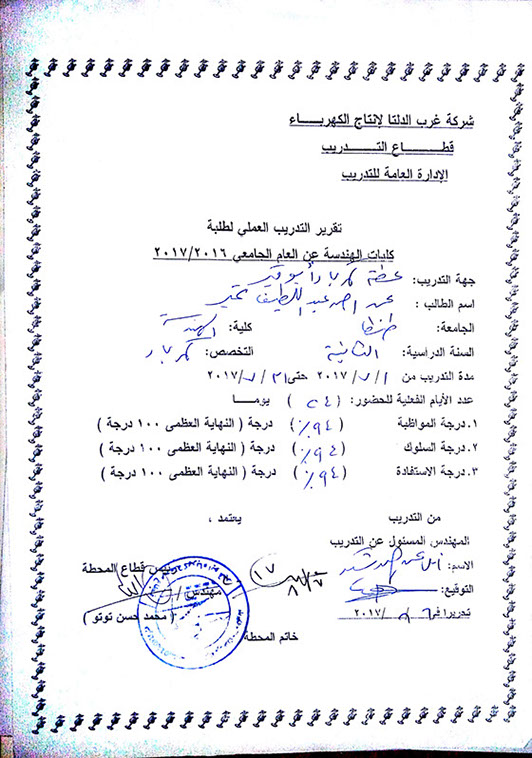 شركة غرب الدلتا لإنتاج الكهرباء
قطاع التدريب
الإدارة العامة للتدريب
تقرير التدريب العملي لطلبة
كليات الهندسة عن العام الجامعي ٢٠١٧/٢٠١٦
جهة التدريب: محطة كهرباء أبو قير
اسم الطالب : عبد اللطيف
الجامعة: طنطا كلية: الهندسة
السنة الدراسية: الثانية التخصص: كهرباء
مدة التدريب من ١/٧/ ٢٠١٧ حتى ٣١/٧/٢٠١٧
عدد الأيام الفعلية للحضور: ( ٢٤ ) يومـا
١. درجة المواظبة ( ٩٤٪ ) درجة ( النهاية العظمى ١٠٠ درجة )
٢. درجة السلوك ( ٩٤٪ ) درجة ( النهاية العظمى ١٠٠ درجة )
٣. درجة الاستفادة ( ٩٤٪ ) درجة ( النهاية العظمى ١٠٠ درجة )
من التدريب يعتمد ،
المهندس المسئول عن التدريب
الاسم: رئيس قطاع المحطة
التوقيع: مهندس /
تحريرا في / ٢٠١٧ ( محمد حسن توتو )
خاتم المحطة